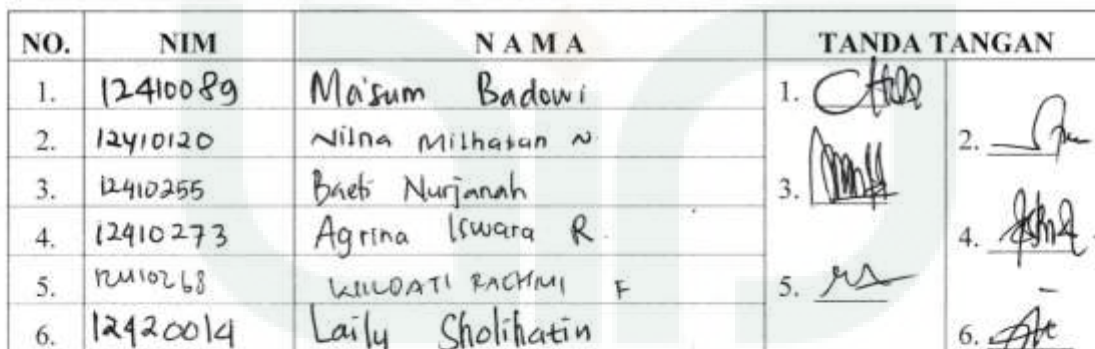 NO. NIM NAMA TANDA TANGAN
1. 12410089 Ma'sum Badowi 1.
2. 12410120 Nilna Milhatan N. 2.
3. 12410255 Baeti Nurjanah 3.
4. 12410273 Agrina Iswara R. 4.
5. 12410268 WILDATI RACHMI F 5.
6. 12420014 Laily Sholihatin 6.